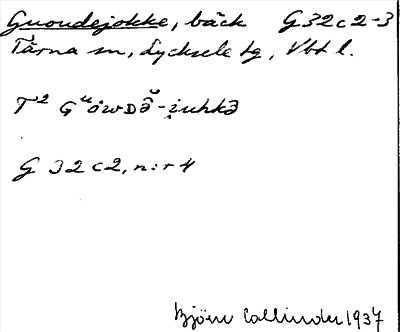 Guondejokke, bäck G 32 c 2-3
Tärna sn, Lycksele lg, Vbt l.
T² Gᵘåwᴅə̆-i̯uhkə
G 32 c 2, n:r 4
Björn Collinder 1937